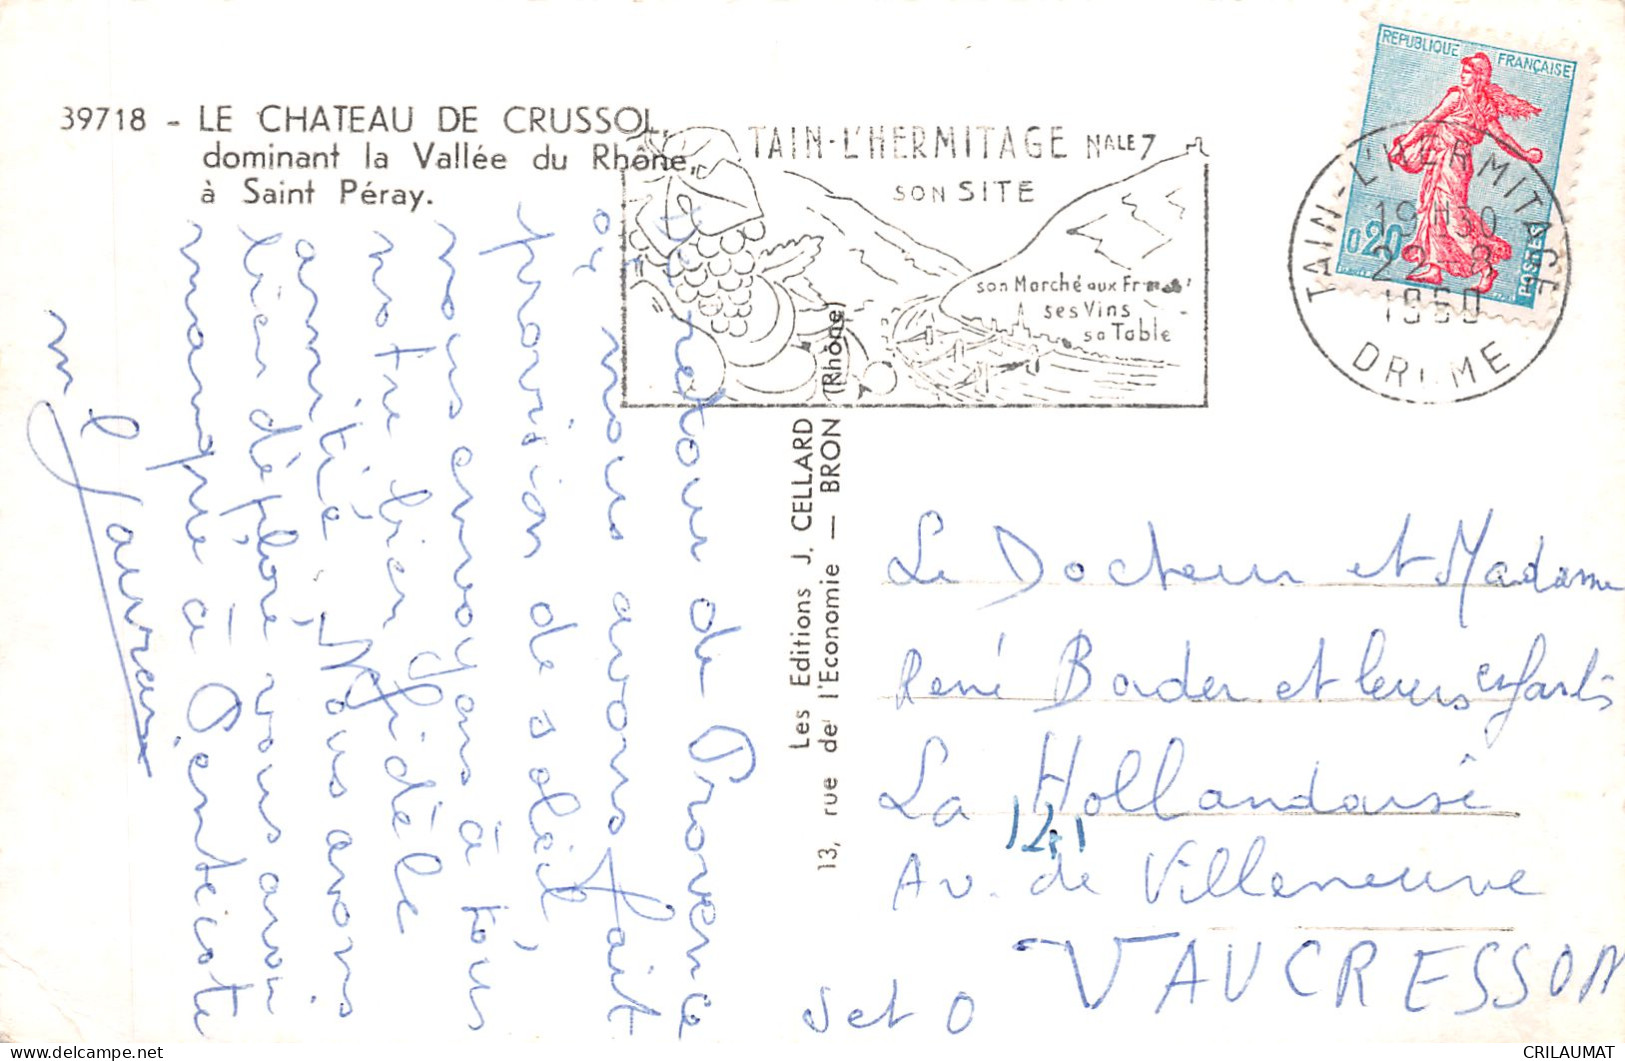 39718 - LE CHATEAU DE CRUSSOL,
dominant la Vallée du Rhône,
à Saint Péray.
TAIN-L'HERMITAGE NALE 7
SON SITE
son Marché aux Fruits
ses Vins
sa Table
REPUBLIQUE FRANÇAISE
0,20
POSTES
TAIN-L'HERMITAGE
19H30
22-8
1960
DROME
Les Editions J. CELLARD
13, rue de l'Economie — BRON (Rhône)
retour de Provence
où nous avons fait
provision de soleil,
nous envoyons à tous
notre bien fidèle
amitié. Nous avons
bien déploré vous avoir
manqué à Pentecôte
Le Docteur et Madame
René Bader et leurs enfants
La Hollandaise
141
Av. de Villeneuve
VAUCRESSON
S et O
CRILAUMAT